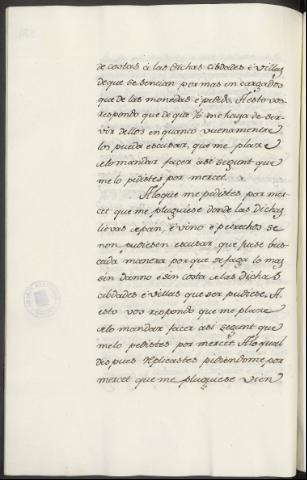 de costas à las dichas cibdades è villas
de que se sentian por mas encargados
que de las monedas è pedido. A esto vos
respondo que de que Yo me haya de ser-
vir dellos en quanto buenamente
los pueda escusar, que me place
de lo mandar facer asi segunt que
me lo pedistes por mercet.
A lo que me pedistes por mer-
cet que me pluguiese donde las dichas
lievas de pan, è vino è petrechos se
non pudiesen escusar que fuese bus-
cada manera por que se faga lo mas
sin danno è sin costa de las dichas
cibdades è villas que ser pudiese. A
esto vos respondo que me place
de lo mandar facer asi segunt que
me lo pedistes por mercet. A lo qual
despues replicastes pidiendome por
mercet que me pluguiese bien